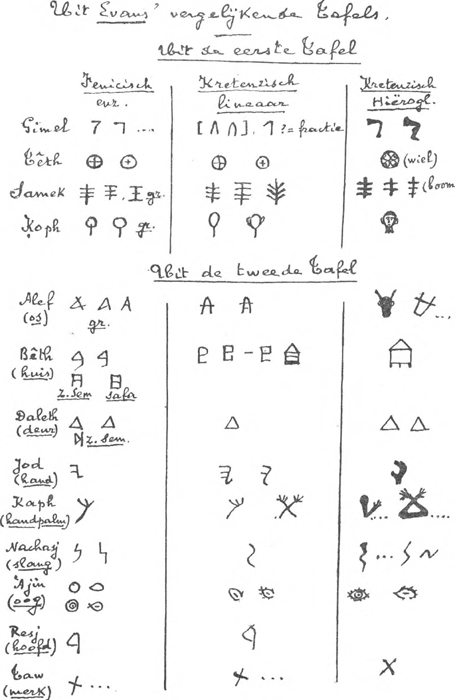 Uit Evans' vergelijkende Tafels.
Uit de eerste Tafel
Fenicisch enz. Kretenzisch lineaar Kretenzisch Hiërogl.
Gimel .... ?= fractie
Têth (wiel)
Samek gr. (boom
Koph gr.
Uit de tweede Tafel
Alef (os) gr. ...
Bêth (huis) z.sem safa
Daleth (deur) z.sem.
Jod (hand)
Kaph (handpalm) ... ....
Nachasj (slang) ...
'Ajin (oog)
Resj (hoofd)
Taw (merk) ... ...